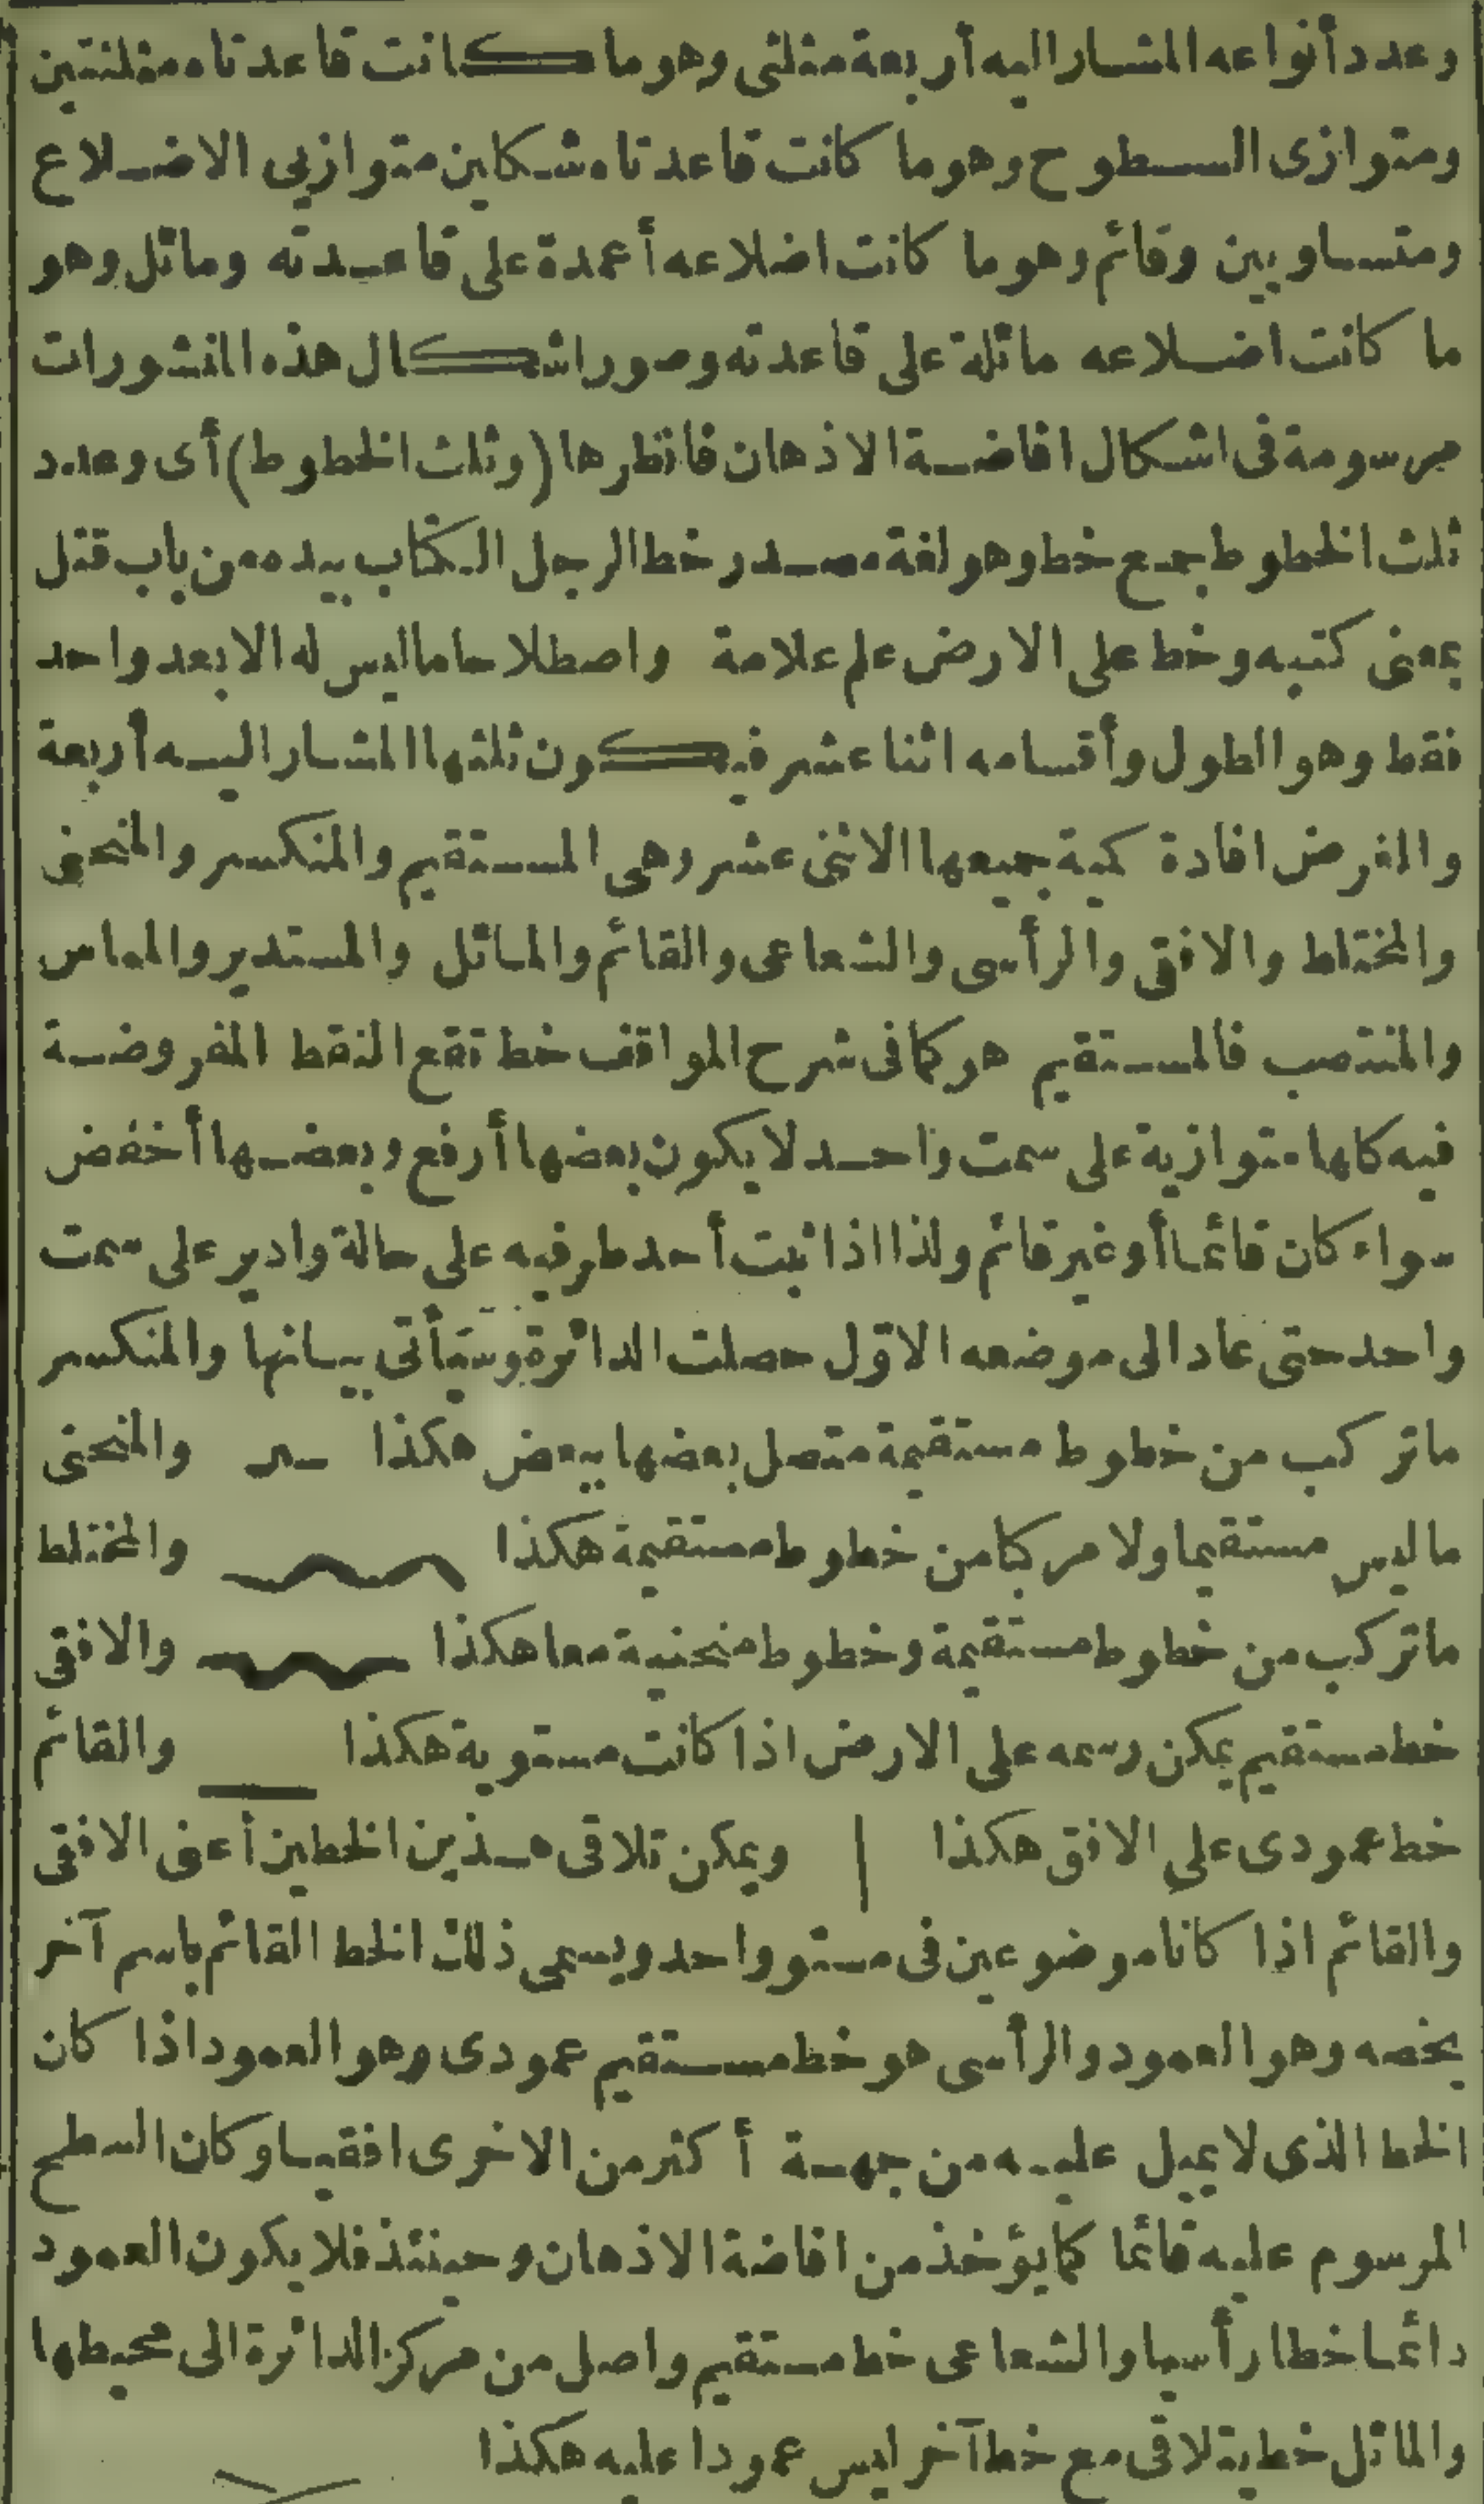 وعدد أنواعه المشار اليه أربعة مثلثى وهو ما كانت قاعدتاه مثلثتين
ومتوازى السطوح وهو ما كانت قاعدتاه شكلين متوازيى الاضلاع
ومتساويين وقائم وهو ما كانت اضلاعه أعمدة على قاعدته ومائل وهو
ما كانت اضلاعه مائلة على قاعدته وصور اشكال هذه المنشورات
مرسومة فى اشكال افاضة الاذهان فانظرها (وثلث الخطوط) أى وعدد
ثلث الخطوط جمع خط وهو لغة مصدر خط الرجل الكتاب بيده من باب قتل
بمعنى كتبه وخط على الارض علم علامة واصطلاحا ما ليس له الا بعد واحد
فقط وهو الطول وأقسامه اثنا عشر فيكون ثلثها المشار اليه أربعة
والغرض افادة كمية جميعها الاثنى عشر وهى المستقيم والمنكسر والمنحنى
والمختلط والافقى والرأسى والشعاعى والقائم والمائل والمستدير والمماس
والمنتصب فالمستقيم هو كما فى شرح المواقف خط تقع النقط المفروضة
فيه كلها متوازية على سمت واحد لا يكون بعضها أرفع وبعضها أخفض
سواء كان قائما أو غير قائم ولذا اذا ثبت أحد طرفيه على حالة وادير على سمت
واحد حتى عاد الى موضعه الاوّل حصلت الدائرة وستأتى بيانها والمنكسر
ما تركب من خطوط مستقيمة متصل بعضها ببعض هكذا والمنحنى
ما ليس مستقيما ولا مركبا من خطوط مستقيمة هكذا والمختلط
ما تركب من خطوط مستقيمة وخطوط منحنية معا هكذا والافقى
خط مستقيم يمكن رسمه على الارض اذا كانت مستوية هكذا والقائم
خط عمودى على الافق هكذا ويمكن تلاقى هذين الخطين أعنى الافقى
والقائم اذا كانا موضوعين فى مستو واحد ويسمى ذلك الخط القائم باسم آخر
يخصه وهو العمود والرأسى هو خط مستقيم عمودى وهو العمود اذا كان
الخط الذى لا يميل عليه من جهة أكثر من الاخرى افقيا وكان السطح
المرسوم عليه قائما كما يؤخذ من افاضة الاذهان وحينئذ فلا يكون العمود
دائما خطا رأسيا والشعاعى خط مستقيم واصل من مركز الدائرة الى محيطها
والمائل خط يتلاقى مع خط آخر ليس عمودا عليه هكذا